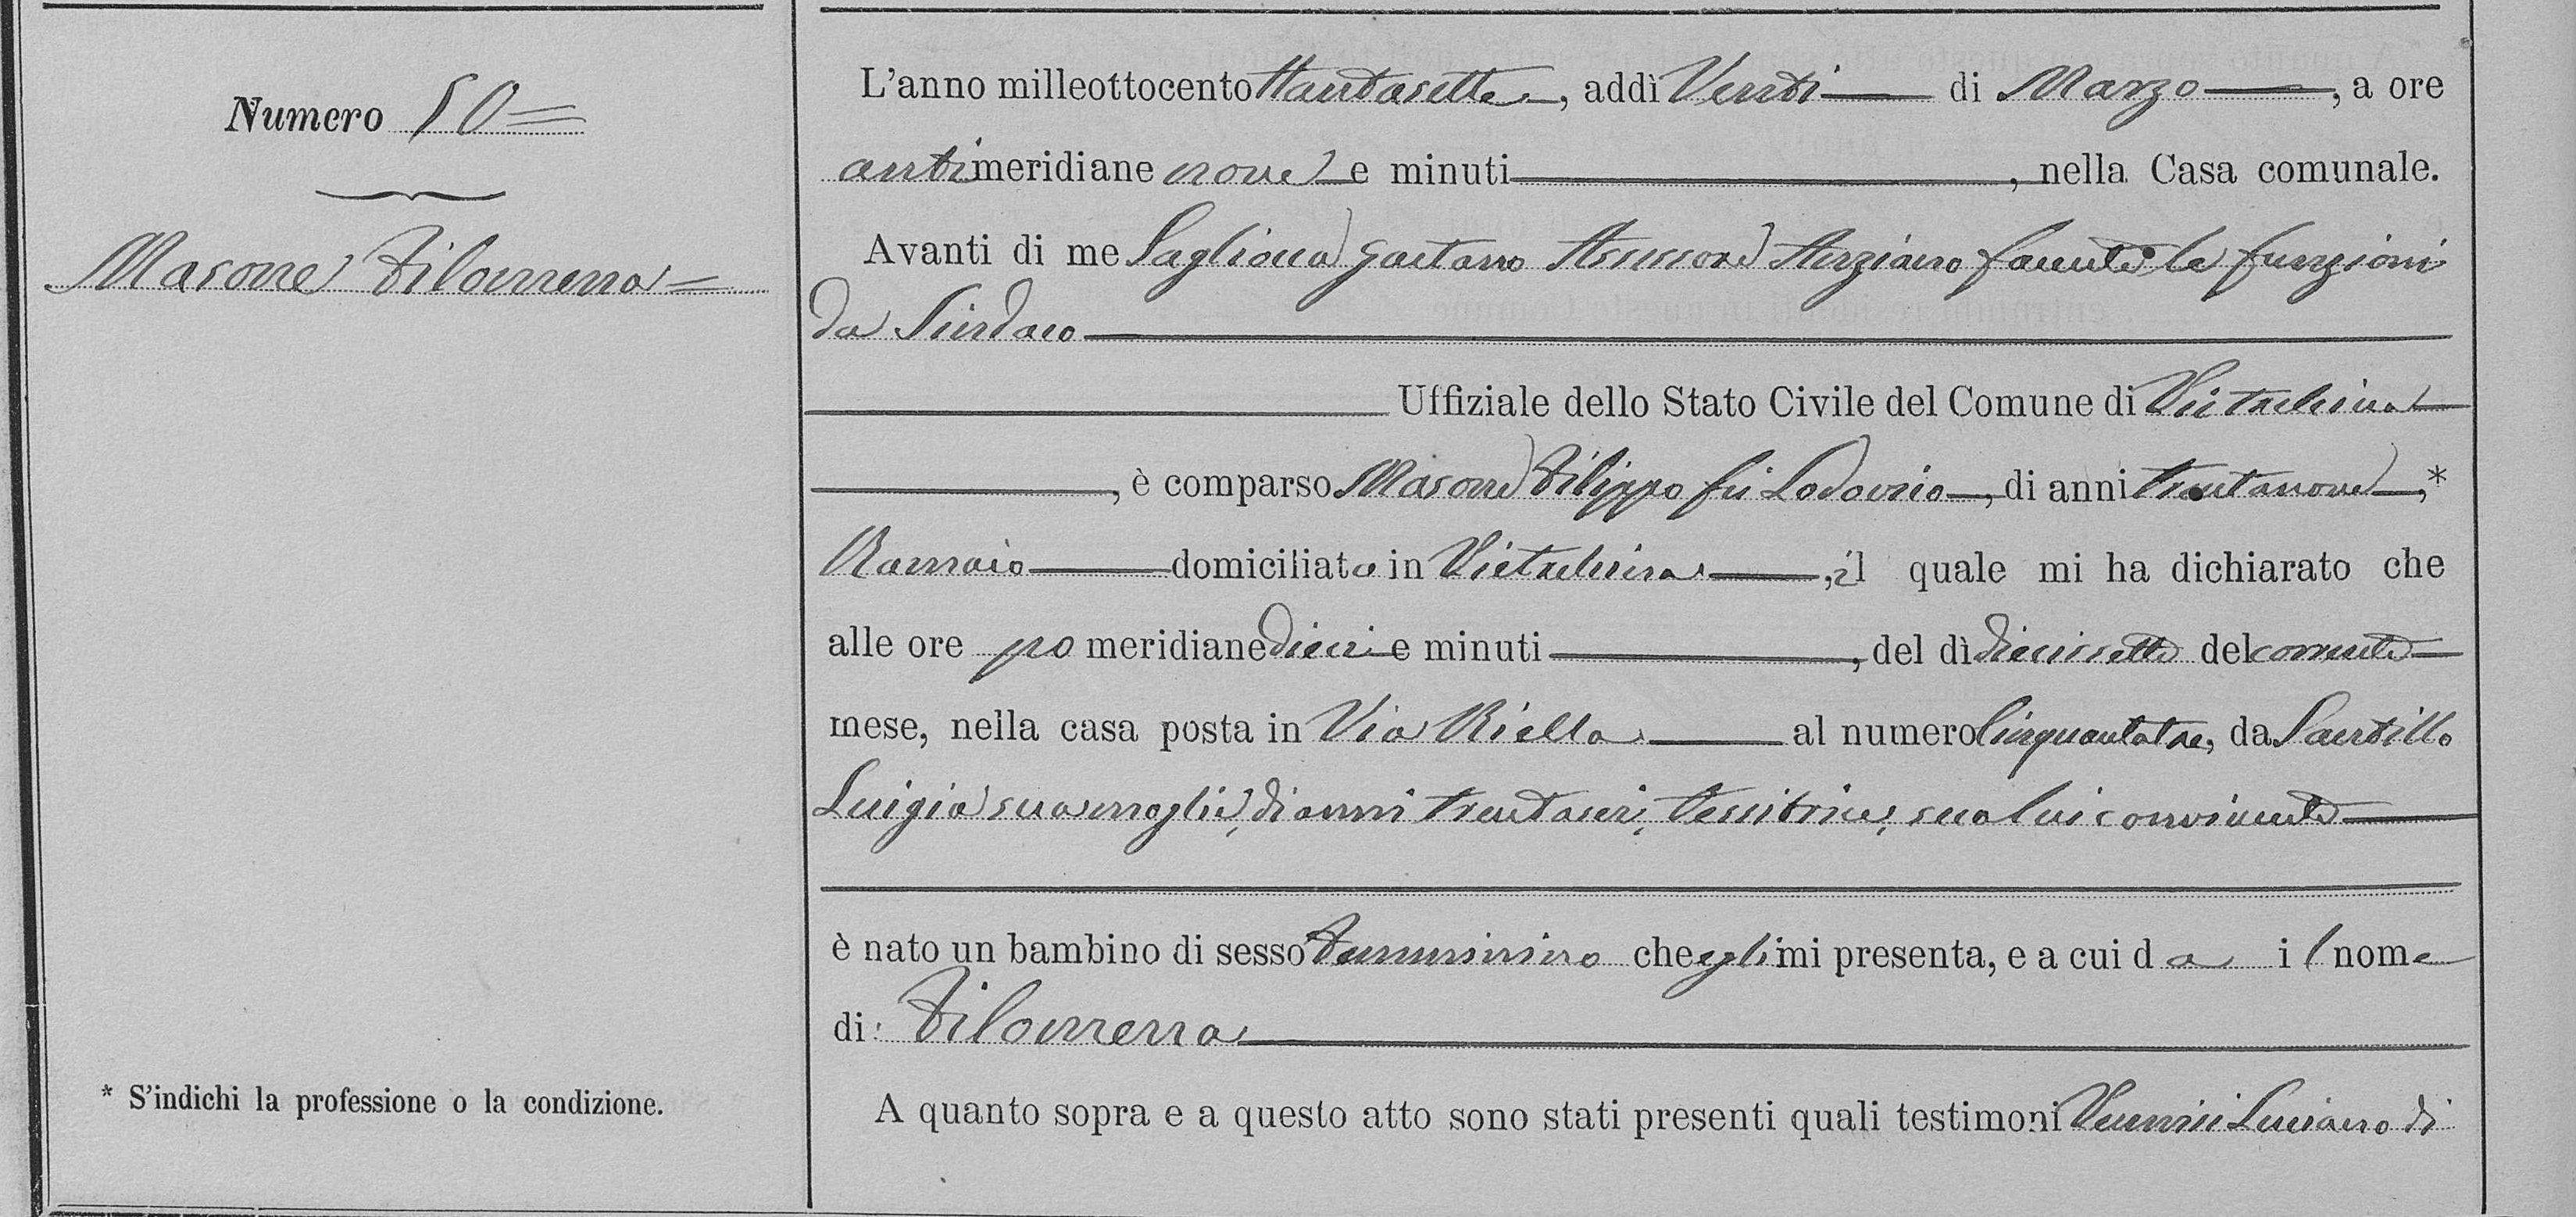 Numero 50=
Masone Filomena=
* S'indichi la professione o la condizione.
L'anno milleottocento ttantasette, addì Venti di Marzo, a ore
antimeridiane nove e minuti, nella Casa comunale.
Avanti di me Gaetano Assessore Anziano facente le funzioni
da Sindaco
Uffiziale dello Stato Civile del Comune di Vitulano
, è comparso Masone Filippo fu Lodovico, di anni trentanove,*
Ramaio domiciliato in, il quale mi ha dichiarato che
alle ore pomeridiane dieci e minuti, del dì diecissette del corrente
mese, nella casa posta in Via Riella al numero Cinquantatre, da Santillo
Luigia sua moglie, di anni trentasei, tessitrice, seco lui convivente
è nato un bambino di sesso Femminino che egli mi presenta, e a cui da il nome
di Filomena
A quanto sopra e a questo atto sono stati presenti quali testimoni Luciano di